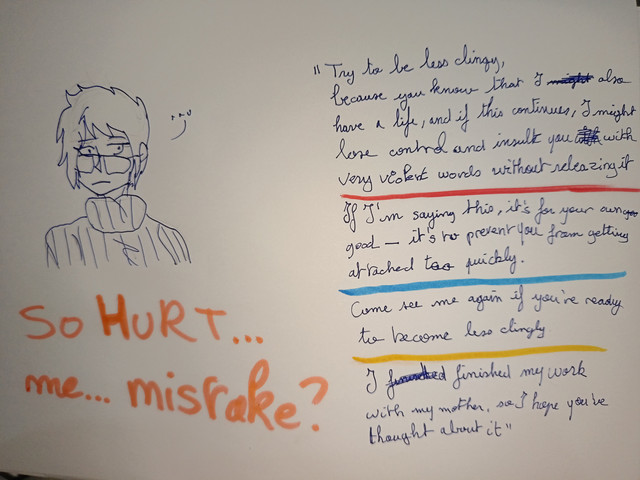 "Try to be less clingy,
because you know that I might also
have a life, and if this continues, I might
lose control and insult you with
very violent words without releazing it
If I'm saying this, it's for your own
good - it's to prevent you from getting
attached too quickly.
Come see me again if you're ready
to become less clingly
I finished finished my work
with my mother, so I hope you've
thought about it"
So HURT...
me... mistake?